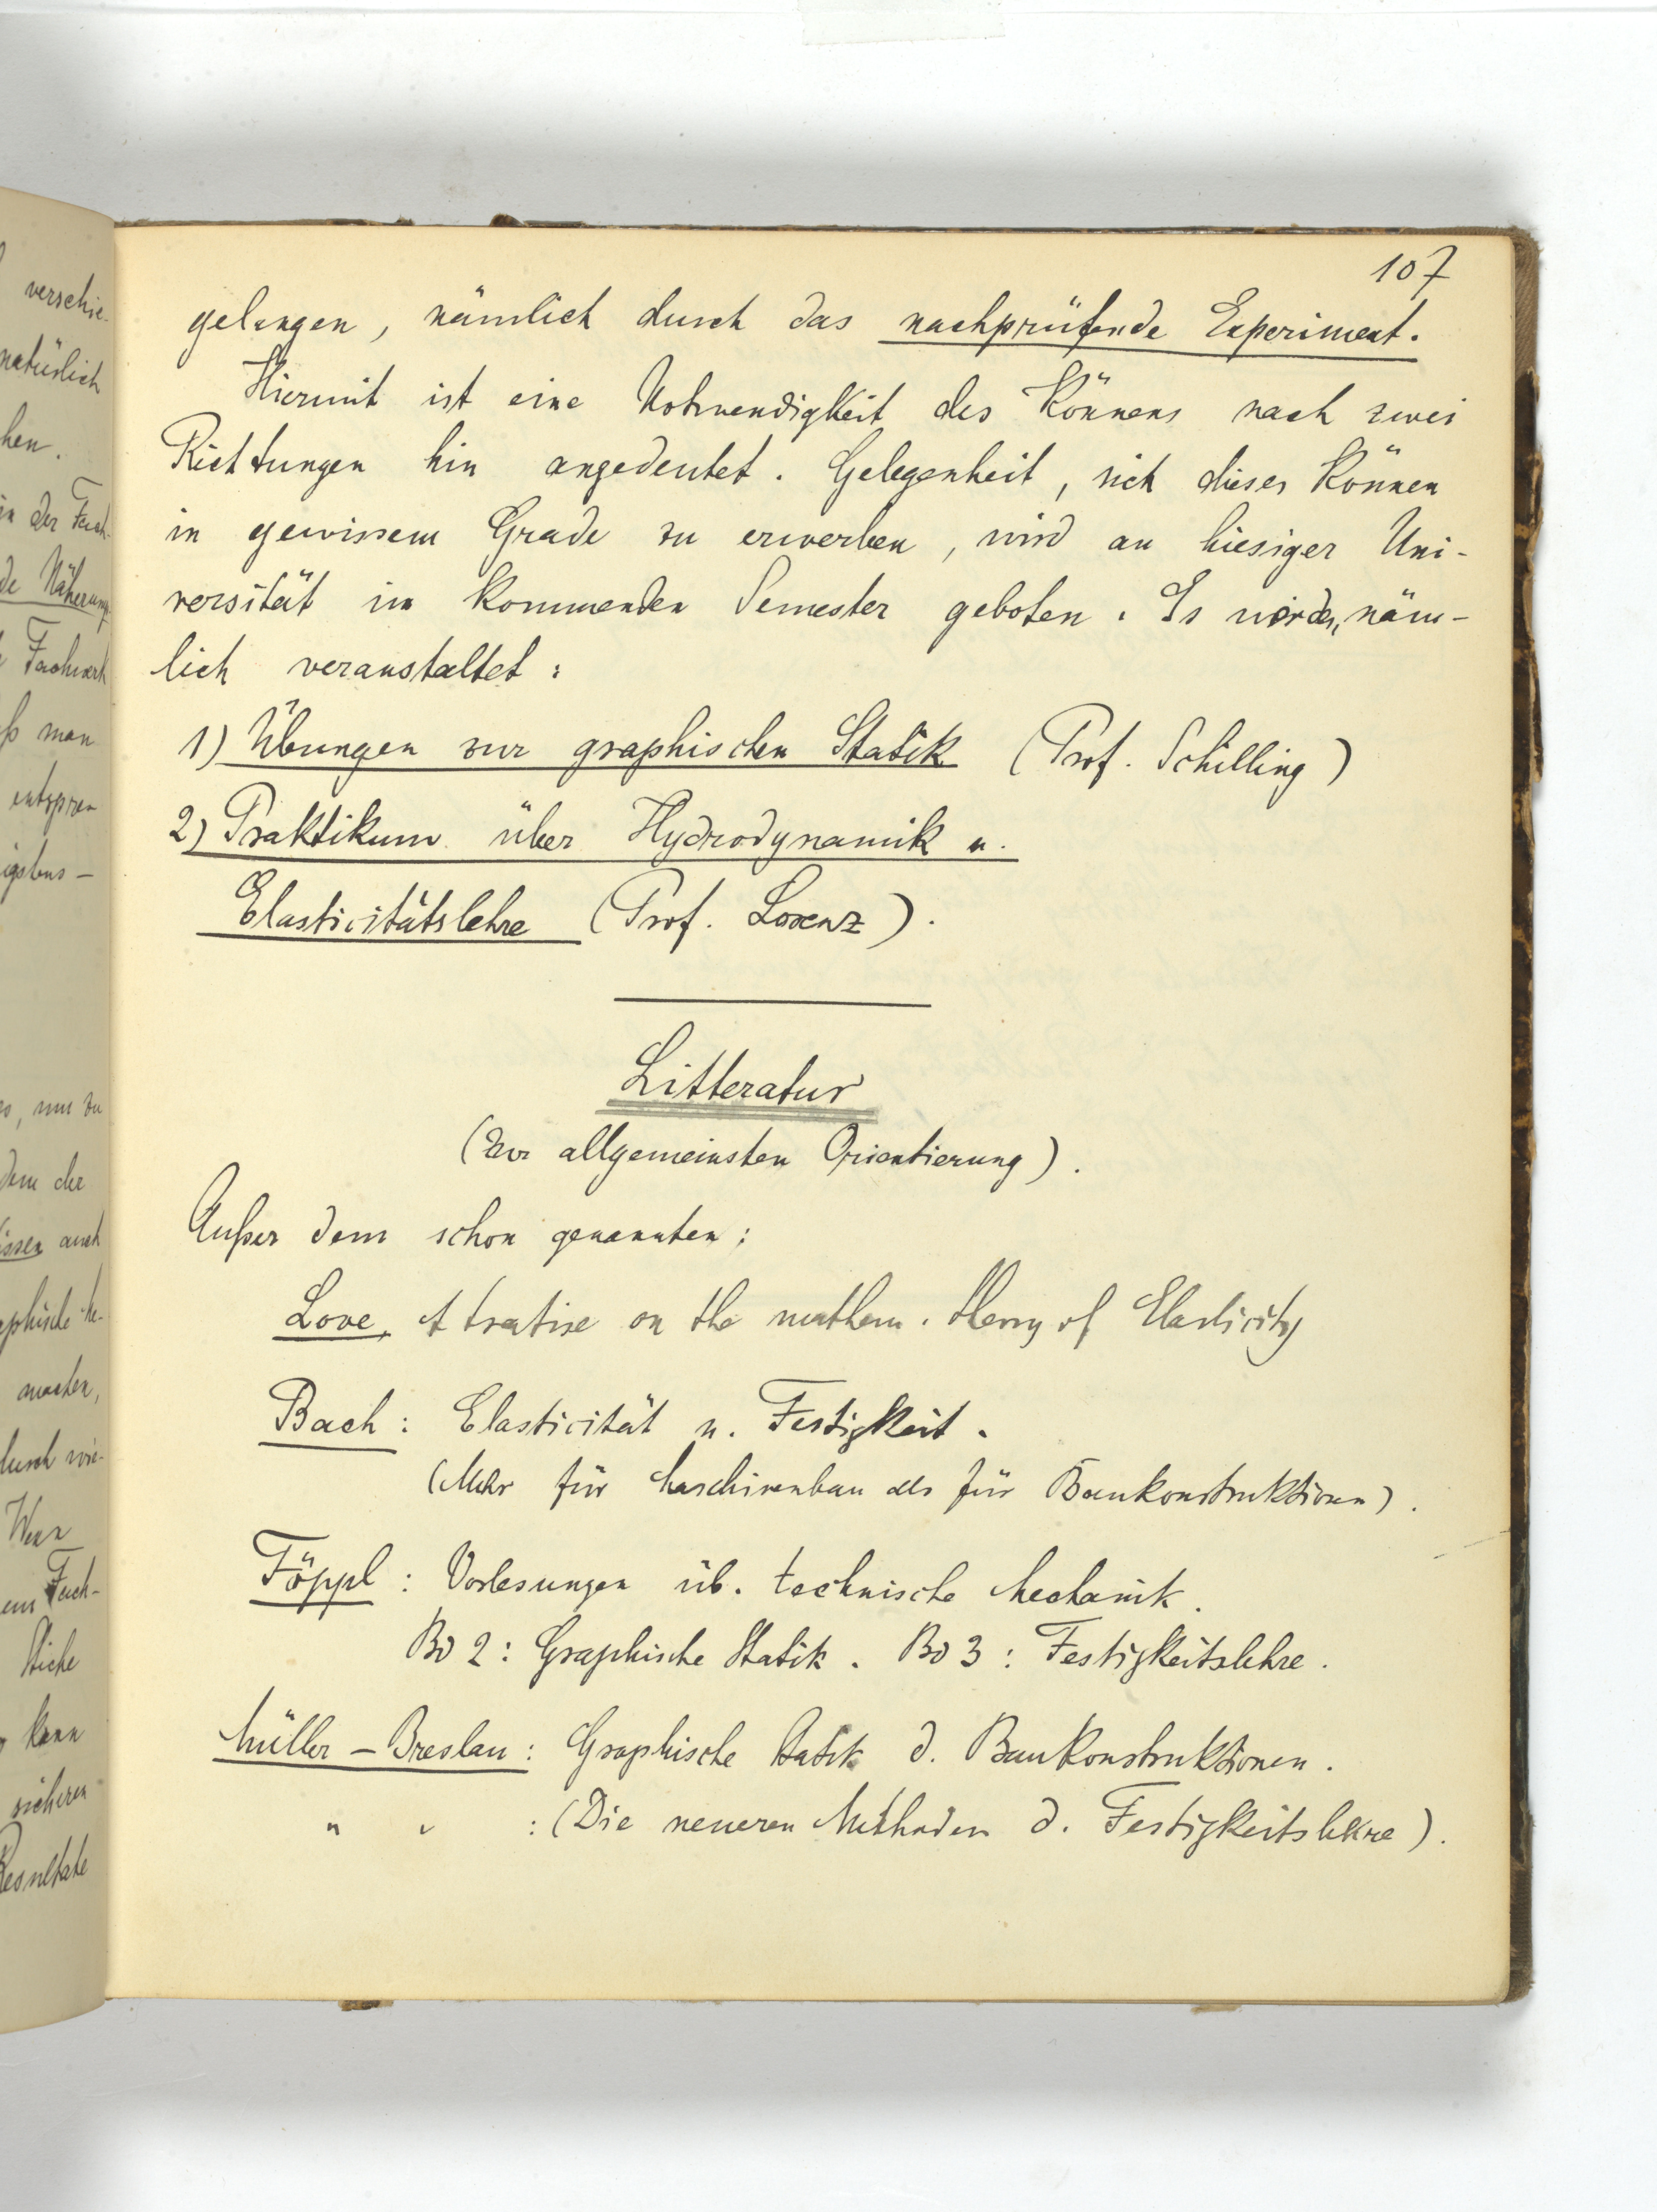 verschie-
natürlich
hen.
in der Fach-
de Näherung
Fachwerk
ß man
entspre
igstens -
, nur zu
dem die
issen auch
aphische
machen,
durch wie-
Wenn
em Fach-
kann
sicheren
Resultate
107
gelangen, nämlich durch das nachprüfende Experiment.
Hiermit ist eine Notwendigkeit des Könnens nach zwei
Richtungen hin angedeutet. Gelegenheit, sich dieses Können
in gewissem Grade zu erwerben, wird an hiesiger Uni-
versität im kommenden Semester geboten. Es werden näm-
lich veranstaltet:
1) Übungen zur graphischen Statik (Prof. Schilling)
2) Praktikum über Hydrodynamik u.
Elasticitätslehre (Prof. Lorenz).
Litteratur
(Zur allgemeinsten Orientierung).
Außer dem schon genannten:
Love, A treatise on the mathem. theory of Elasticity
Bach: Elasticität u. Festigkeit.
(Mehr für Maschinenbau als für Baukonstruktionen).
Föppl: Vorlesungen üb. technische Mechanik.
Bd 2: Graphische Statik. Bd 3: Festigkeitslehre.
Müller-Breslau: Graphische Statik d. Baukonstruktionen.
" " : (Die neueren Methoden d. Festigkeitslehre).